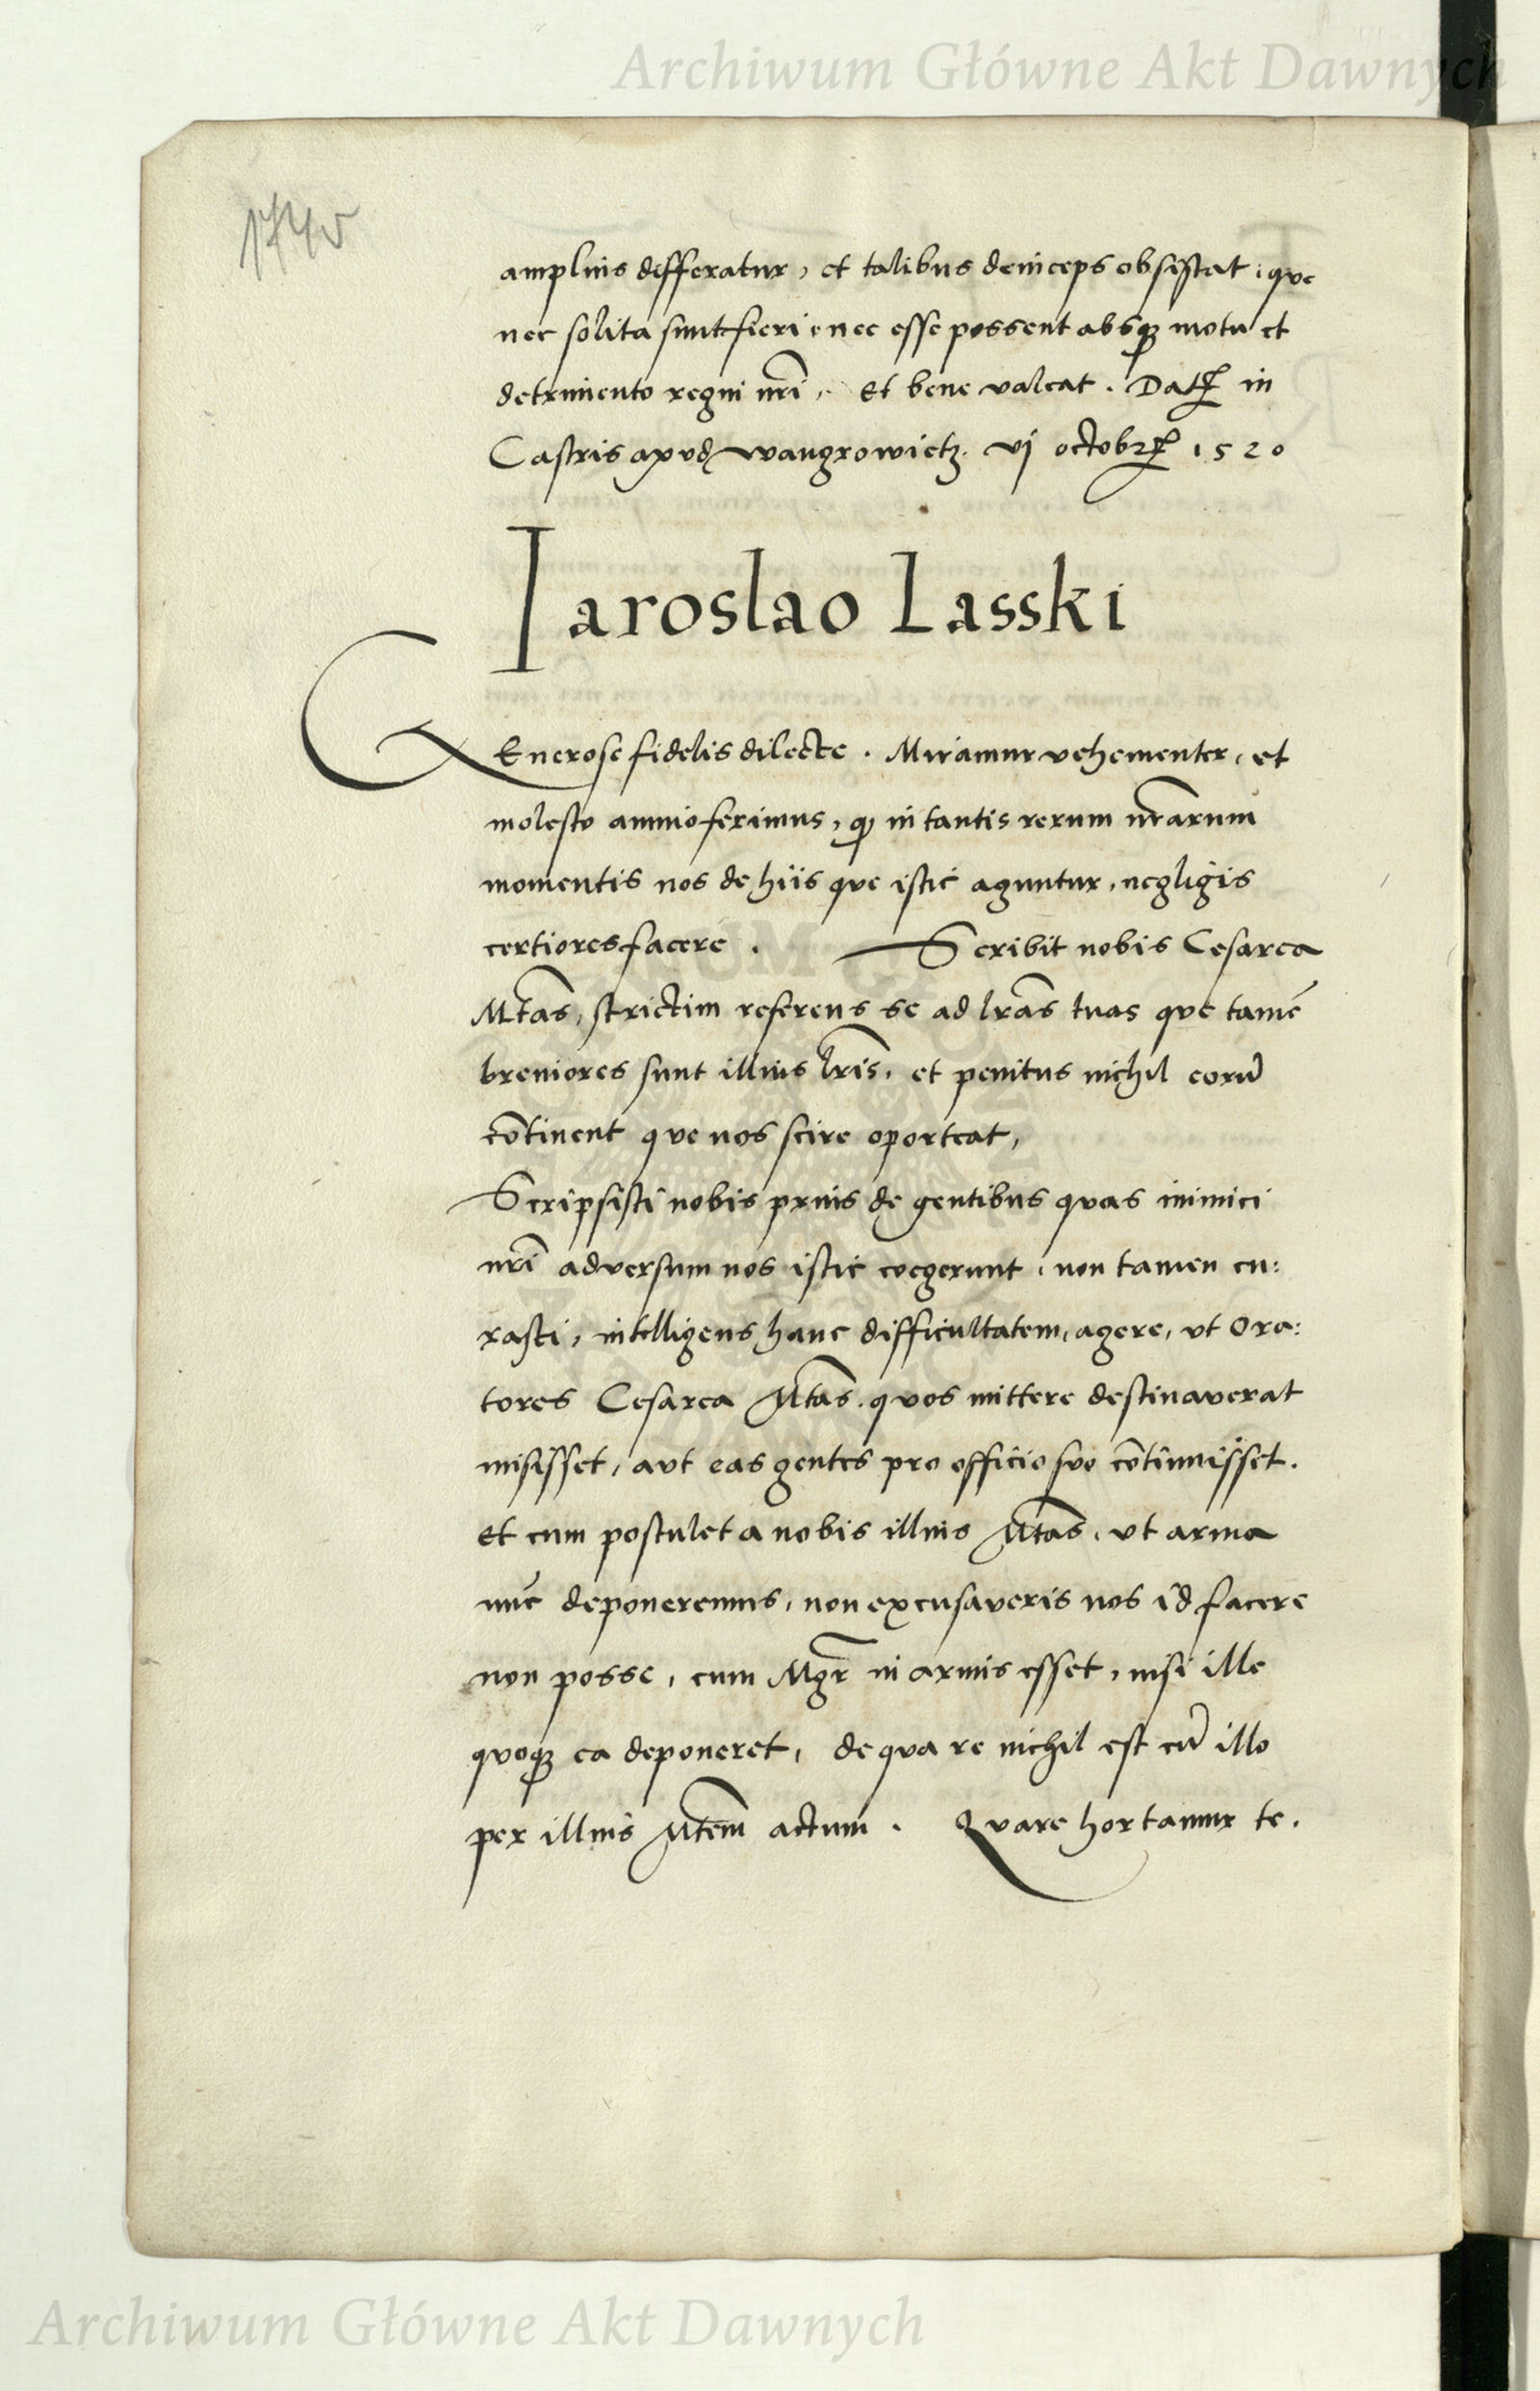 Archiwum Główne Akt Dawnych
174v
amplius differatur, et talibus deinceps obsistat: que
nec solita sunt fieri, nec esse possent absq; motu et
detrimento regni nr̃i. Et bene valeat. Dat in
Castris apud wangrowietz. vj octobr 1520
Iaroslao Lasski
GEnerose fidelis dilecte. Miramur vehementer, et
molesto animo ferimus, q in tantis rerum nr̃arum
momentis nos de hiis que istic aguntur, negligis
certiores facere. Scribit nobis Cesarea
Mtas̃, strictim referens se ad lr̃as tuas que tamẽ
breuiores sunt illius lr̃is, et penitus nichil eorũ
cõtinent que nos scire oporteat,
Scripsisti nobis prius de gentibus quas inimici
nr̃i adversum nos istic coegerunt, non tamen cu:
rasti, intelligens hanc difficultatem, agere, ut Ora:
tores Cesarea Mtas̃. quos mittere destinaverat
misisset, aut eas gentes pro officio suo cõtinuisset.
Et cum postulet a nobis illius Mtas̃, ut arma
nũc deponeremus, non excusaveris nos id facere
non posse, cum Mgr̃ in armis esset, nisi ille
quoq; ea deponeret, de qua re nichil est cũ illo
per illius Mtem̃ actum. Quare hortamur te.
Archiwum Główne Akt Dawnych